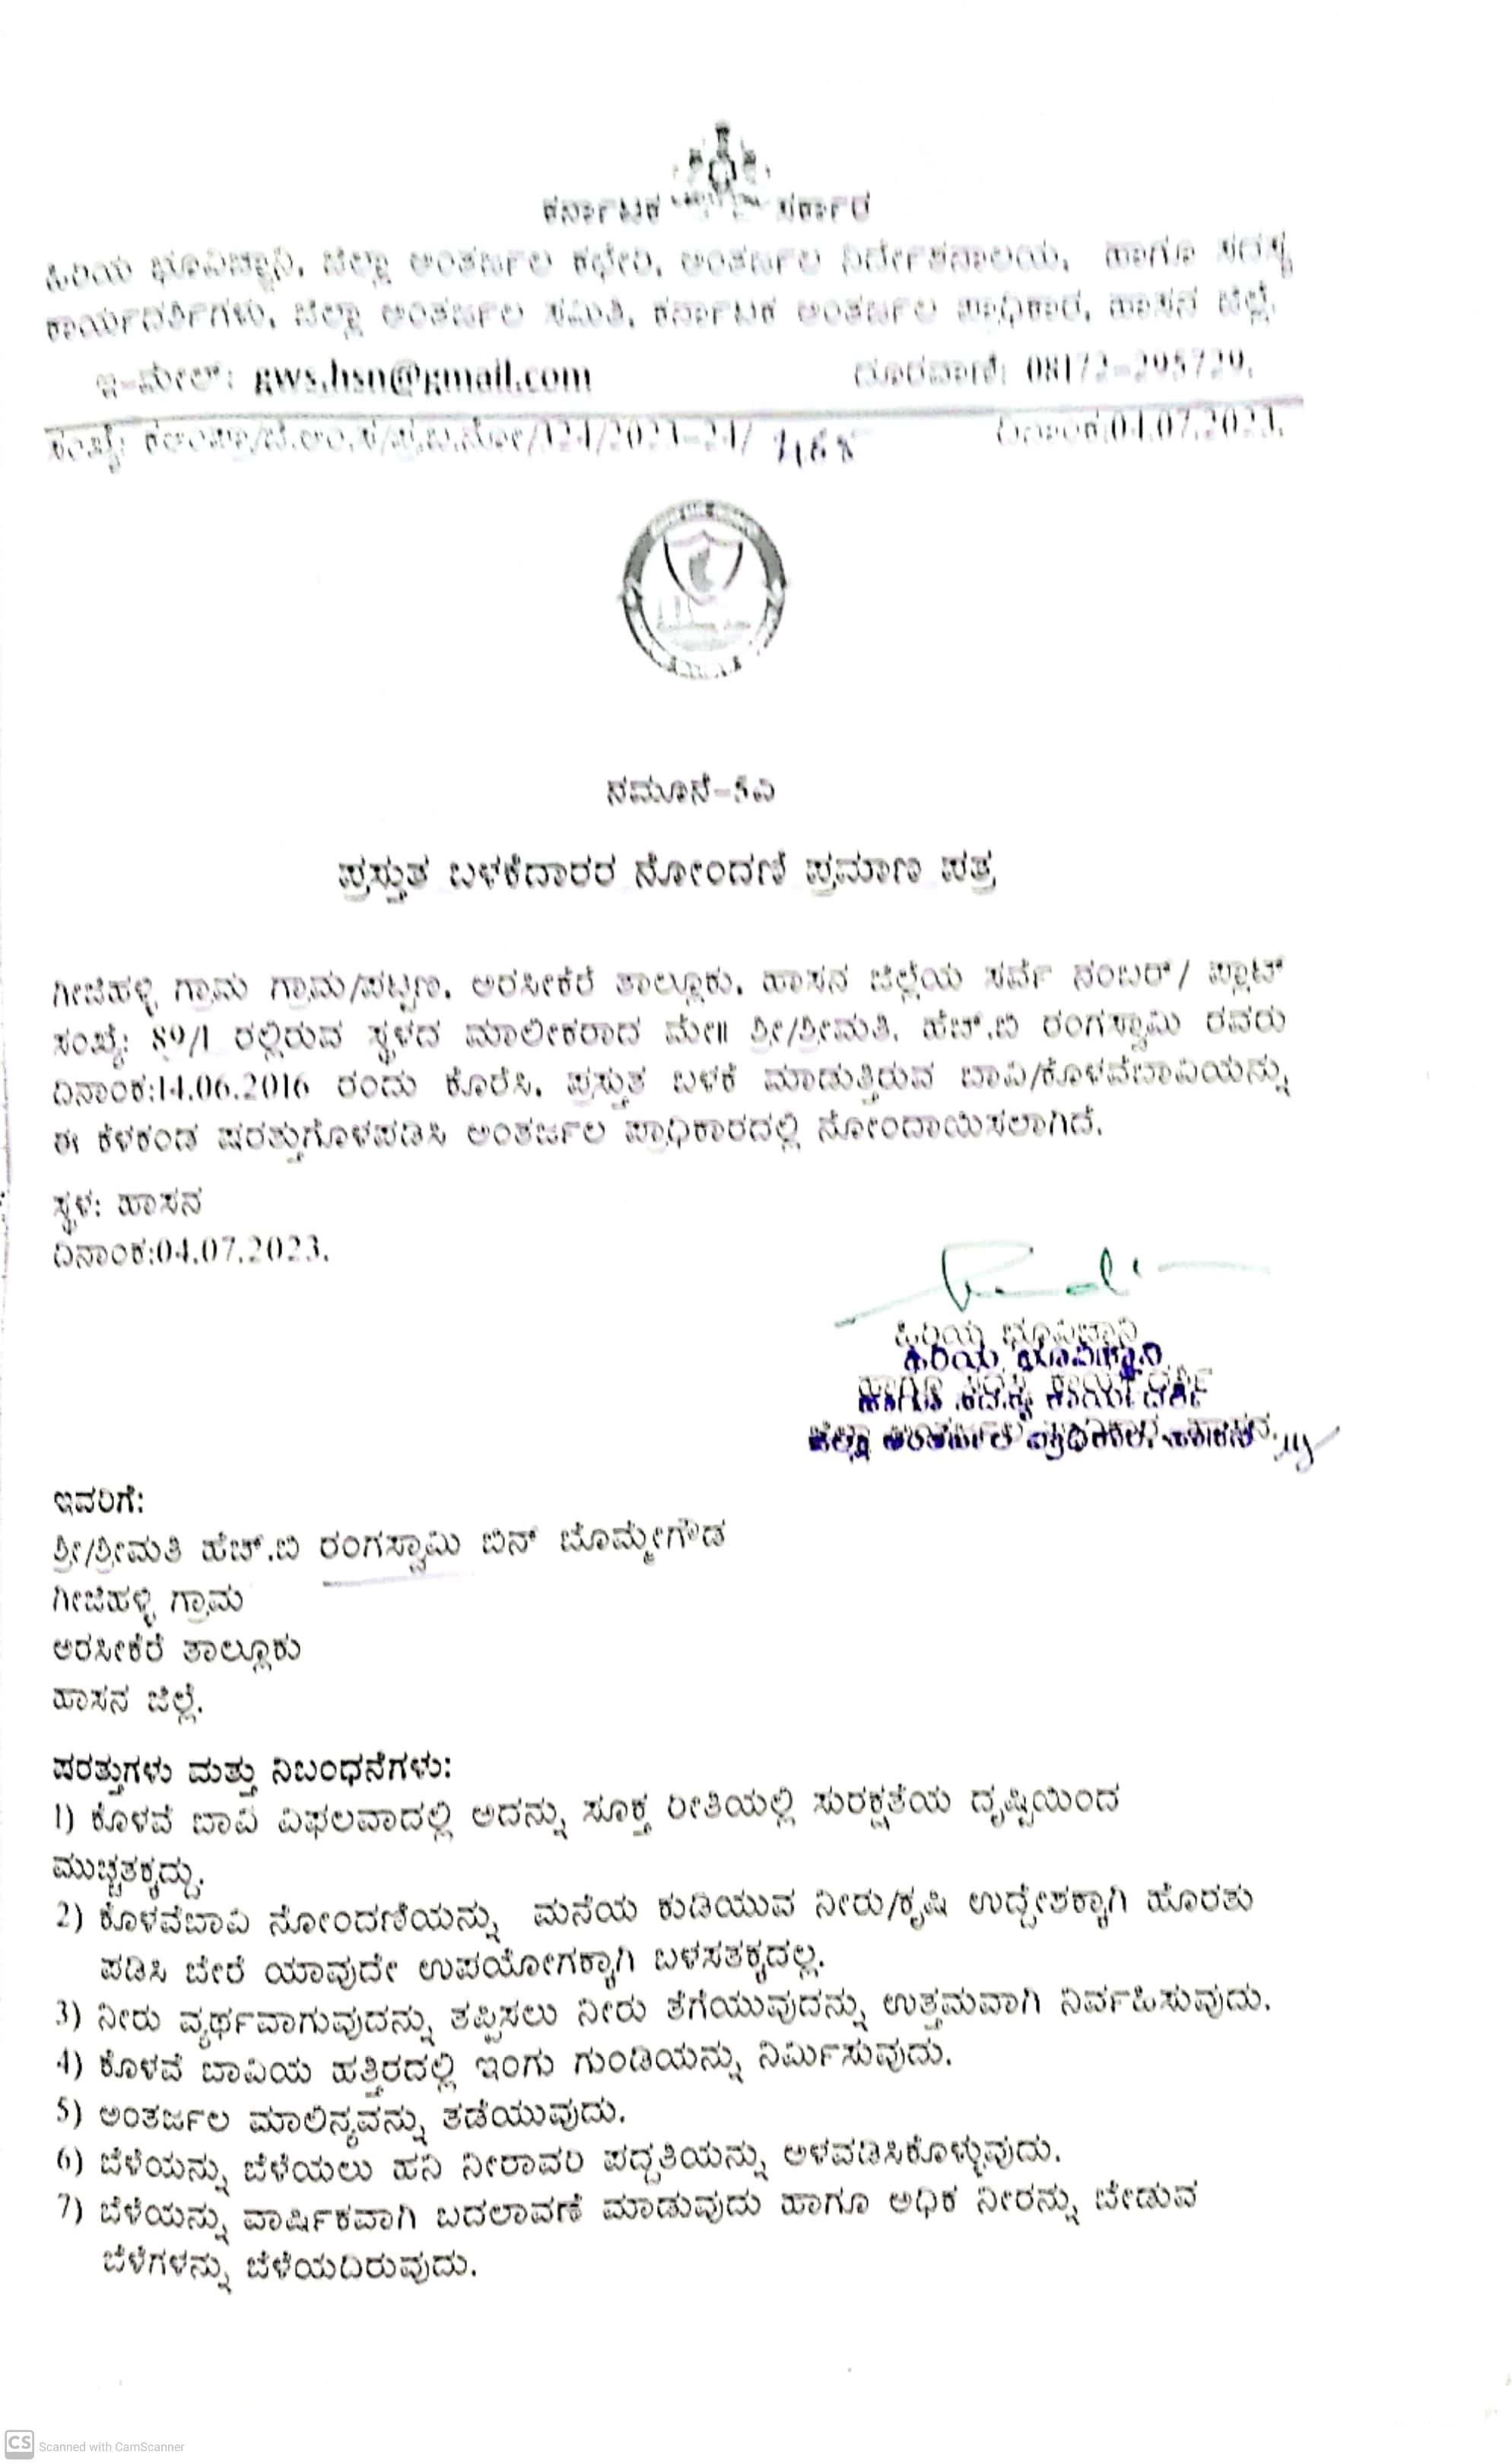 ಕರ್ನಾಟಕ ಸರ್ಕಾರ
ಹಿರಿಯ ಭೂವಿಜ್ಞಾನಿ, ಜಿಲ್ಲಾ ಅಂತರ್ಜಲ ಕಛೇರಿ, ಅಂತರ್ಜಲ ನಿರ್ದೇಶನಾಲಯ, ಹಾಗೂ ಸದಸ್ಯ
ಕಾರ್ಯದರ್ಶಿಗಳು, ಜಿಲ್ಲಾ ಅಂತರ್ಜಲ ಸಮಿತಿ, ಕರ್ನಾಟಕ ಅಂತರ್ಜಲ ಪ್ರಾಧಿಕಾರ, ಹಾಸನ ಜಿಲ್ಲೆ.
ಇ-ಮೇಲ್: gws.hsn@gmail.com ದೂರವಾಣಿ: 08172-295729.
ಸಂಖ್ಯೆ: ದಿನಾಂಕ:04.07.2023.
ನಮೂನೆ-5ಎ
ಪ್ರಸ್ತುತ ಬಳಕೆದಾರರ ನೋಂದಣಿ ಪ್ರಮಾಣ ಪತ್ರ
ಗೀಜಿಹಳ್ಳಿ ಗ್ರಾಮ ಗ್ರಾಮ/ಪಟ್ಟಣ, ಅರಸೀಕೆರೆ ತಾಲ್ಲೂಕು, ಹಾಸನ ಜಿಲ್ಲೆಯ ಸರ್ವೆ ನಂಬರ್/ ಪ್ಲಾಟ್
ಸಂಖ್ಯೆ: 89/1 ರಲ್ಲಿರುವ ಸ್ಥಳದ ಮಾಲೀಕರಾದ ಮೇ॥ ಶ್ರೀ/ಶ್ರೀಮತಿ. ಹೆಚ್.ಬಿ ರಂಗಸ್ವಾಮಿ ರವರು
ದಿನಾಂಕ:14.06.2016 ರಂದು ಕೊರೆಸಿ, ಪ್ರಸ್ತುತ ಬಳಕೆ ಮಾಡುತ್ತಿರುವ ಬಾವಿ/ಕೊಳವೆಬಾವಿಯನ್ನು
ಈ ಕೆಳಕಂಡ ಷರತ್ತುಗೊಳಪಡಿಸಿ ಅಂತರ್ಜಲ ಪ್ರಾಧಿಕಾರದಲ್ಲಿ ನೋಂದಾಯಿಸಲಾಗಿದೆ.
ಸ್ಥಳ: ಹಾಸನ
ದಿನಾಂಕ:04.07.2023.
ಹಿರಿಯ ಭೂವಿಜ್ಞಾನಿ
ಹಿರಿಯ ಭೂವಿಜ್ಞಾನಿ
ಹಾಗೂ ಸದಸ್ಯ ಕಾರ್ಯದರ್ಶಿ
ಜಿಲ್ಲಾ ಅಂತರ್ಜಲ ಪ್ರಾಧಿಕಾರ, ಹಾಸನ
ಇವರಿಗೆ:
ಶ್ರೀ/ಶ್ರೀಮತಿ ಹೆಚ್.ಬಿ ರಂಗಸ್ವಾಮಿ ಬಿನ್ ಬೊಮ್ಮೇಗೌಡ
ಗೀಜಿಹಳ್ಳಿ ಗ್ರಾಮ
ಅರಸೀಕೆರೆ ತಾಲ್ಲೂಕು
ಹಾಸನ ಜಿಲ್ಲೆ.
ಷರತ್ತುಗಳು ಮತ್ತು ನಿಬಂಧನೆಗಳು:
1) ಕೊಳವೆ ಬಾವಿ ವಿಫಲವಾದಲ್ಲಿ ಅದನ್ನು ಸೂಕ್ತ ರೀತಿಯಲ್ಲಿ ಸುರಕ್ಷತೆಯ ದೃಷ್ಟಿಯಿಂದ
ಮುಚ್ಚತಕ್ಕದ್ದು.
2) ಕೊಳವೆಬಾವಿ ನೋಂದಣಿಯನ್ನು ಮನೆಯ ಕುಡಿಯುವ ನೀರು/ಕೃಷಿ ಉದ್ದೇಶಕ್ಕಾಗಿ ಹೊರತು
ಪಡಿಸಿ ಬೇರೆ ಯಾವುದೇ ಉಪಯೋಗಕ್ಕಾಗಿ ಬಳಸತಕ್ಕದಲ್ಲ.
3) ನೀರು ವ್ಯರ್ಥವಾಗುವುದನ್ನು ತಪ್ಪಿಸಲು ನೀರು ತೆಗೆಯುವುದನ್ನು ಉತ್ತಮವಾಗಿ ನಿರ್ವಹಿಸುವುದು.
4) ಕೊಳವೆ ಬಾವಿಯ ಹತ್ತಿರದಲ್ಲಿ ಇಂಗು ಗುಂಡಿಯನ್ನು ನಿರ್ಮಿಸುವುದು.
5) ಅಂತರ್ಜಲ ಮಾಲಿನ್ಯವನ್ನು ತಡೆಯುವುದು.
6) ಬೆಳೆಯನ್ನು ಬೆಳೆಯಲು ಹನಿ ನೀರಾವರಿ ಪದ್ಧತಿಯನ್ನು ಅಳವಡಿಸಿಕೊಳ್ಳುವುದು.
7) ಬೆಳೆಯನ್ನು ವಾರ್ಷಿಕವಾಗಿ ಬದಲಾವಣೆ ಮಾಡುವುದು ಹಾಗೂ ಅಧಿಕ ನೀರನ್ನು ಬೇಡುವ
ಬೆಳೆಗಳನ್ನು ಬೆಳೆಯದಿರುವುದು.
CS Scanned with CamScanner